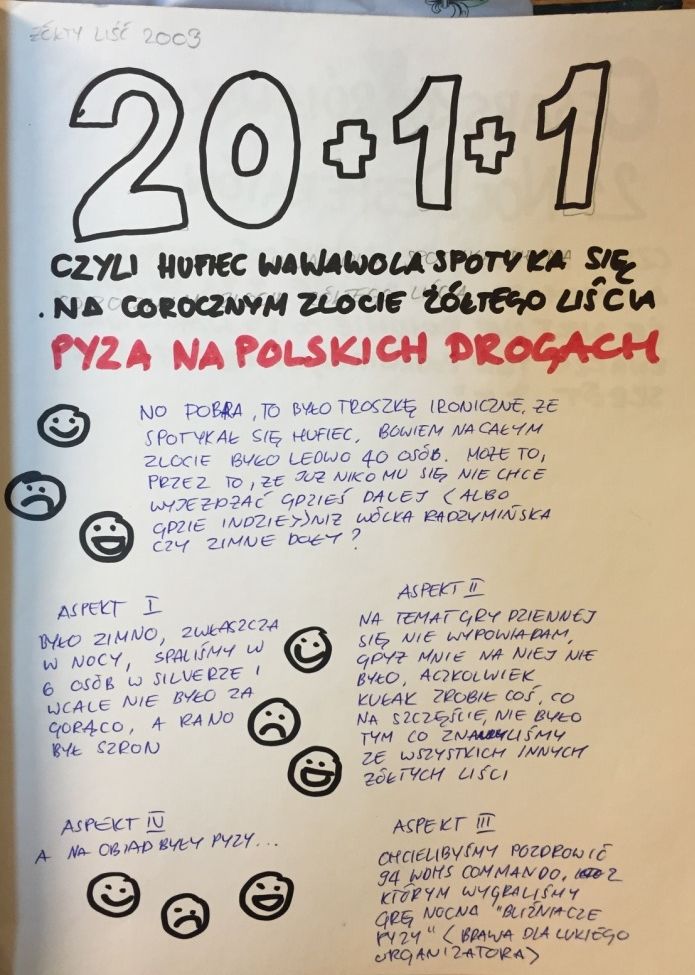 ŻÓŁTY LIŚĆ 2003
20+1+1
CZYLI HUFIEC WAWAWOLA SPOTYKA SIĘ
NA COROCZNYM ZLOCIE ŻÓŁTEGO LIŚCIA
PYZA NA POLSKICH DROGACH
NO DOBRA, TO BYŁO TROSZKĘ IRONICZNE, ŻE
SPOTYKAŁ SIĘ HUFIEC, BOWIEM NA CAŁYM
ZLOCIE BYŁO LEDWO 40 OSÓB. MOŻE TO,
PRZEZ TO, ŻE JUŻ NIKOMU SIĘ NIE CHCE
WYJEŻDŻAĆ GDZIEŚ DALEJ (ALBO
GDZIE INDZIEJ) NIŻ WÓLKA RADZYMIŃSKA
CZY ZIMNE DOŁY?
ASPEKT I
BYŁO ZIMNO, ZWŁASZCZA
W NOCY, SPALIŚMY W
6 OSÓB W SILVERZE I
WCALE NIE BYŁO ZA
GORĄCO, A RANO
BYŁ SZRON
ASPEKT II
NA TEMAT GRY DZIENNEJ
SIĘ NIE WYPOWIADAM,
GDYŻ MNIE NA NIEJ NIE
BYŁO, ACZKOLWIEK
KUŁAK ZROBIŁ COŚ, CO
NA SZCZĘŚCIE, NIE BYŁO
TYM CO ZNALIŚMY
ZE WSZYSTKICH INNYCH
ŻÓŁTYCH LIŚCI
ASPEKT IV
A NA OBIAD BYŁY PYZY...
ASPEKT III
CHCIELIBYŚMY POZDROWIĆ
94 WDHS COMMANDO, Z
KTÓRYM WYGRALIŚMY
GRĘ NOCNĄ "BLIŹNIACZE
PYZY" (BRAWA DLA LUKIEGO
ORGANIZATORA)